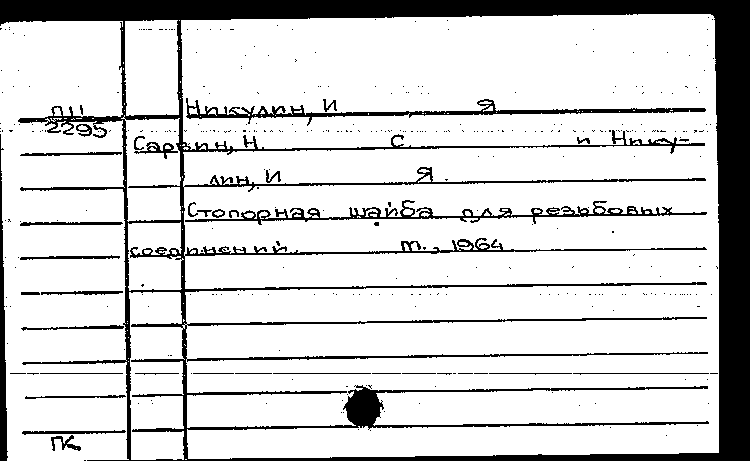 ПЦ Никулин, И Я
2295
Сарвин, Н. С. и Нику-
лин, И Я.
Стопорная шайба для резьбовых
соединений. т., 1964
ПК